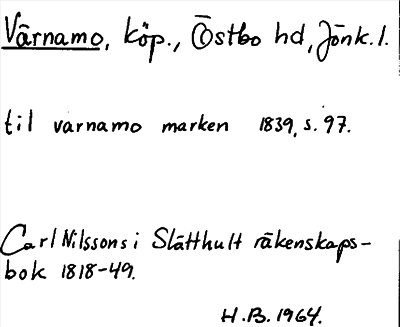 Värnamo, köp., Östbo hd, Jönk. l.
til varnamo marken 1839, s. 97.
Carl Nilssons i Slätthult räkenskaps-
bok 1818-49.
H.B. 1964.